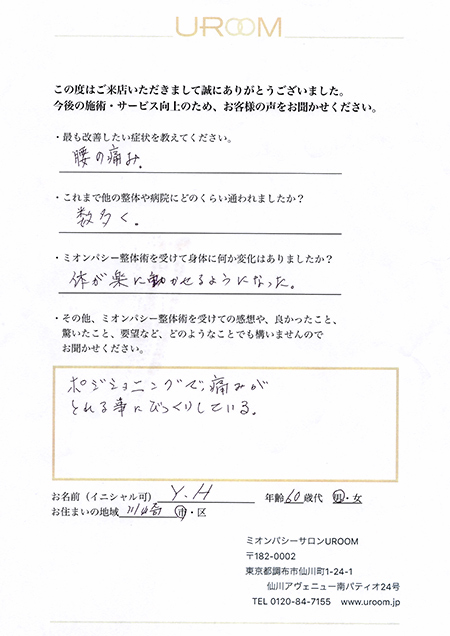 UROOM
この度はご来店いただきまして誠にありがとうございました。
今後の施術・サービス向上のため、お客様の声をお聞かせください。
・最も改善したい症状を教えてください。
腰の痛み。
・これまで他の整体や病院にどのくらい通われましたか？
数多く。
・ミオンパシー整体術を受けて身体に何か変化はありましたか？
体が楽に動かせるようになった。
・その他、ミオンパシー整体術を受けての感想や、良かったこと、
驚いたこと、要望など、どのようなことでも構いませんので
お聞かせください。
ポジショニングで、痛みが
とれる事にびっくりしている。
お名前（イニシャル可） Y.H 年齢 60 歳代 男・女
お住まいの地域 川崎 市・区
ミオンパシーサロンUROOM
〒182-0002
東京都調布市仙川町1-24-1
仙川アヴェニュー南パティオ24号
TEL 0120-84-7155 www.uroom.jp